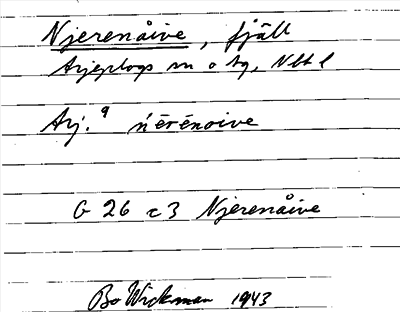 Njerenåive, fjäll
Arjeplogs sn o tg, Nbtl
Arj.⁹ ńērēnoive
G 26 c 3 Njerenåive
Bo Wickman 1943